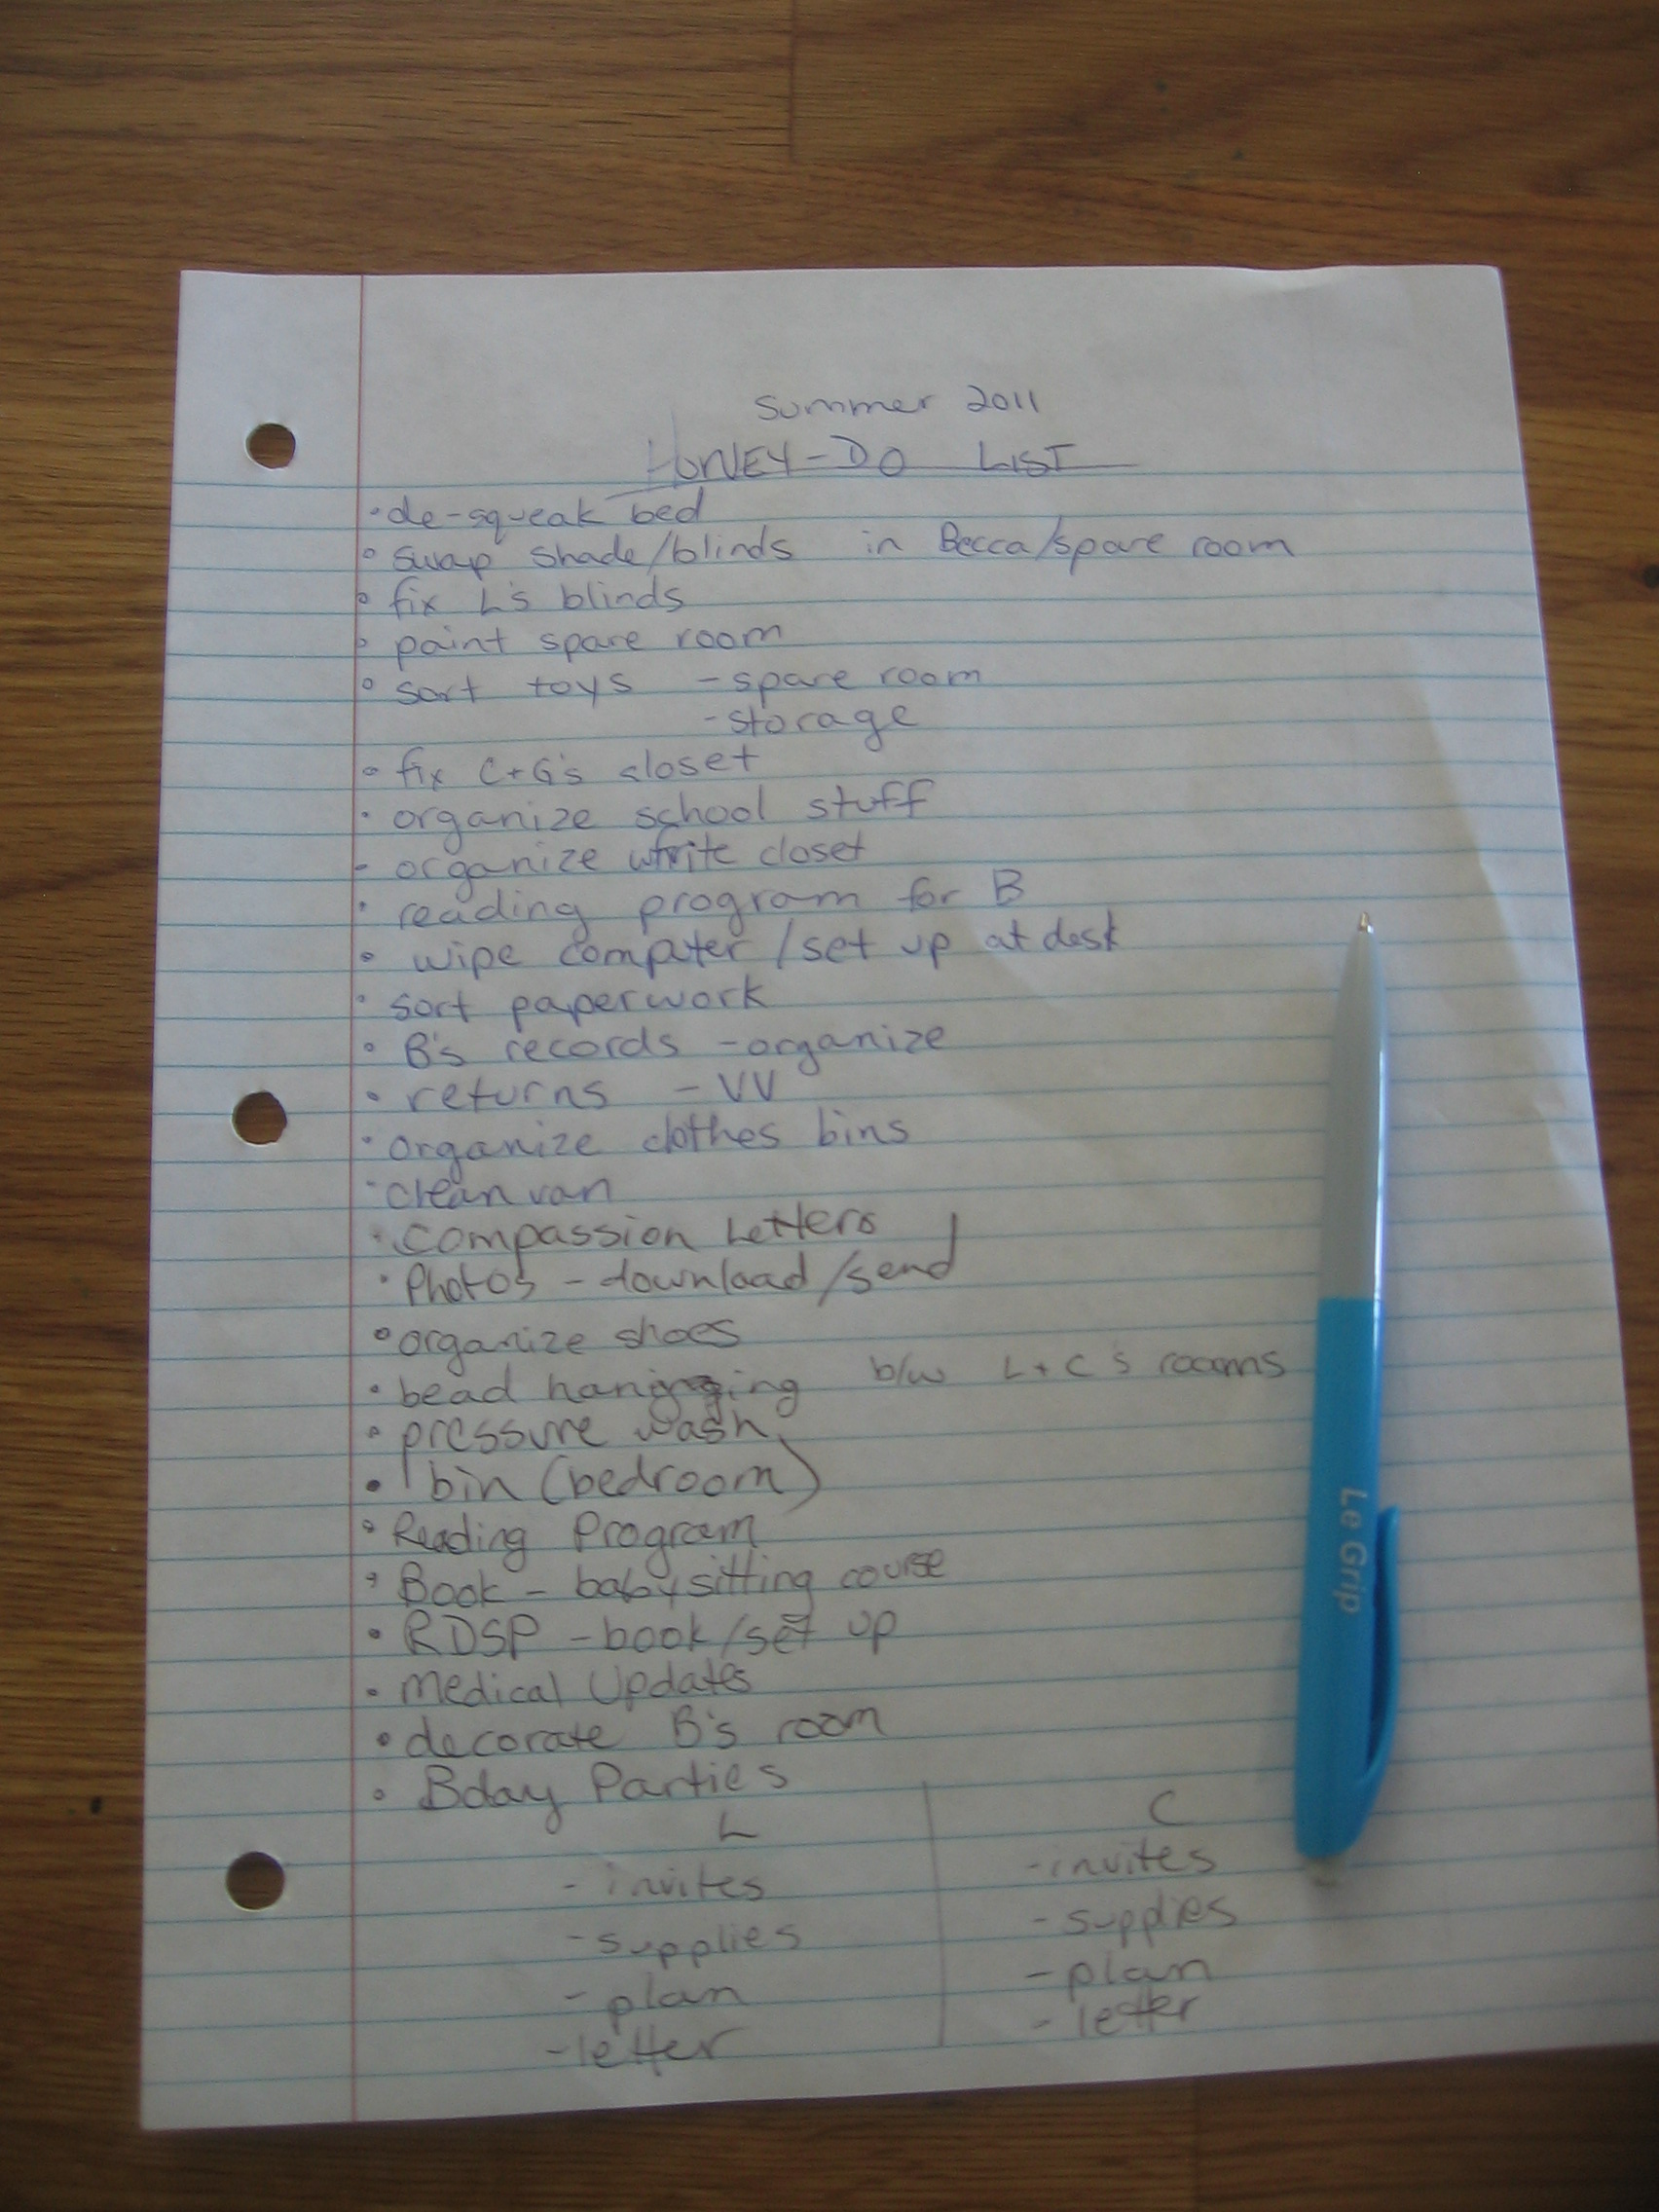 Summer 2011
HONEY-DO LIST
• de-squeak bed
• swap shade/blinds in Becca/spare room
• fix L's blinds
• paint spare room
• sort toys - spare room
- storage
• fix C+G's closet
• organize school stuff
- organize white closet
• reading program for B
• wipe computer /set up at desk
• sort paperwork
• B's records - organize
• returns - VV
• organize clothes bins
• clean van
• Compassion Letters
• Photos - download/send
• organize shoes
• bead hanging b/w L+C's rooms
• pressure wash
• 1 bin (bedroom)
• Reading Program
• Book - babysitting course
• RDSP - book/set up
• Medical Updates
• decorate B's room
• Bday Parties
L
- invites
- supplies
- plan
- letter
C
- invites
- supplies
- plan
- letter
Le Grip